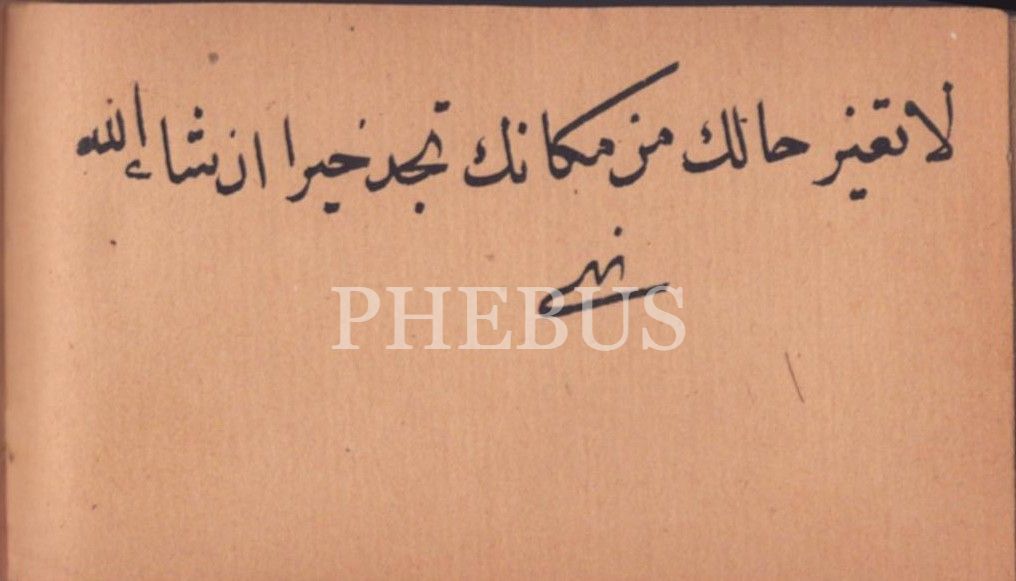 لا تغير حالك من مكانك تجد خيرا ان شاء الله
نهى
PHEBUS